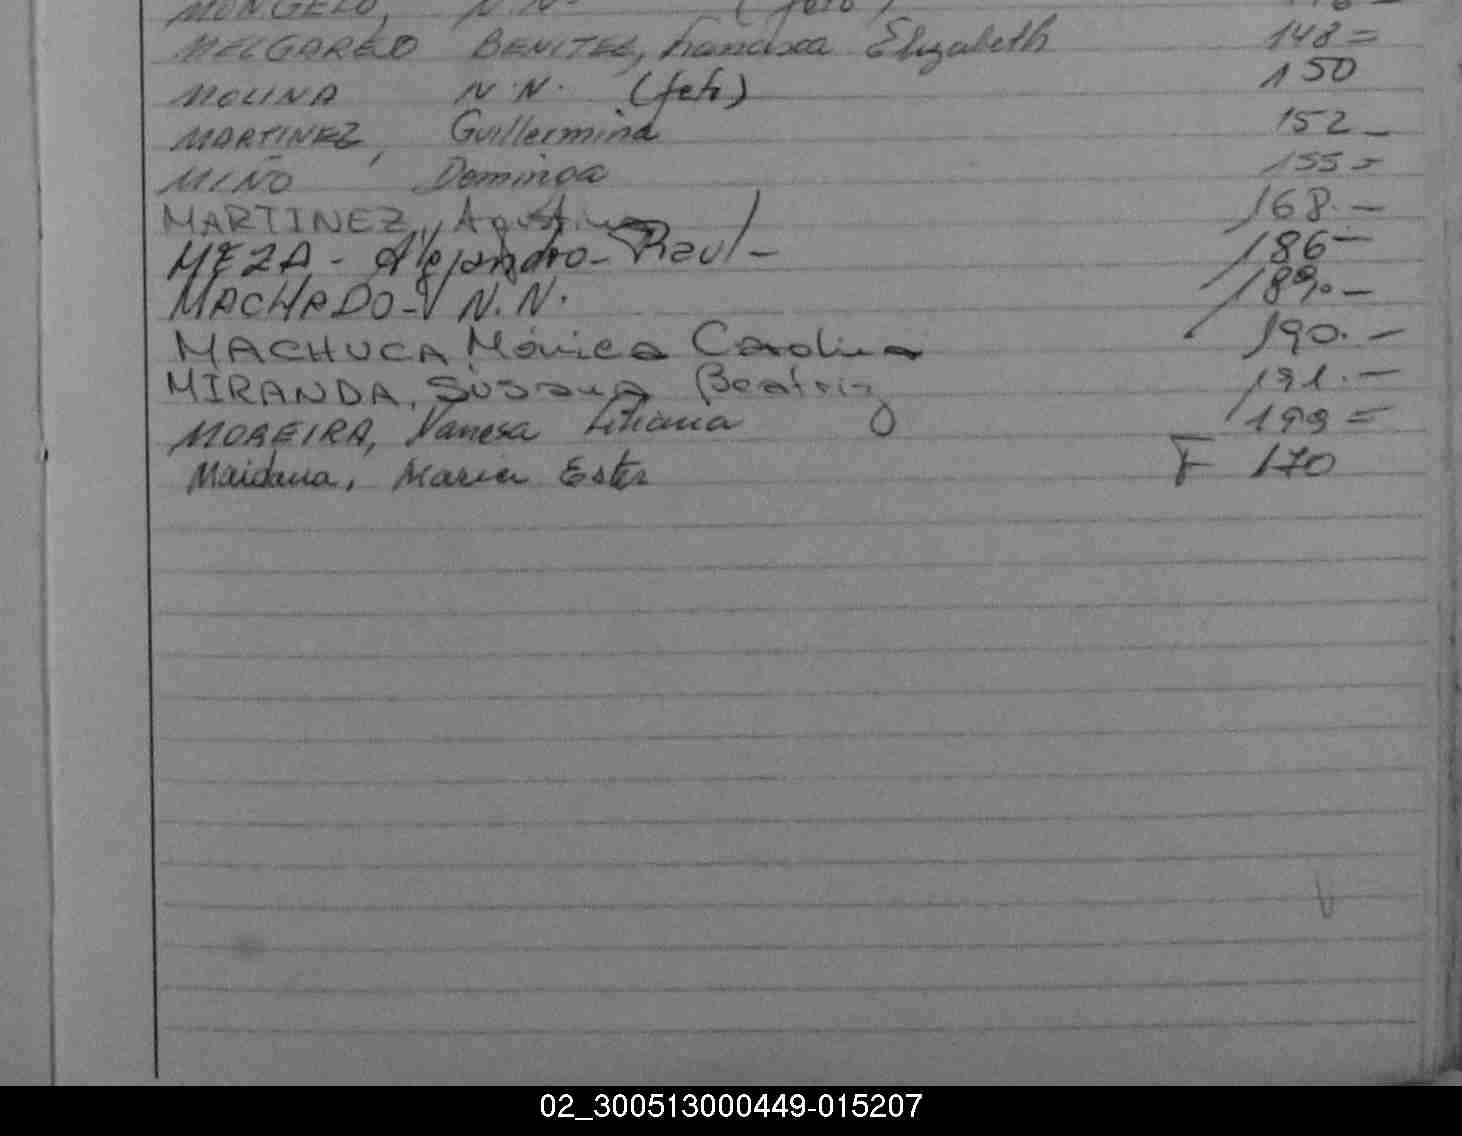 MONGELO, N.N. (feto)
MELGAREJO BENITEZ, Francisca Elizabeth 148=
MOLINA N.N. (feto) 150
MARTINEZ, Guillermina 152_
MIÑO Dominga 155=
MARTINEZ, Agustina 168.-
MEZA - Alejandro - Raul - 186-
MACHADO - N.N. 189.-
MACHUCA Mónica Carolina 190.-
MIRANDA, Susana Beatriz 191.-
MOREIRA, Vanesa Liliana 199=
Maidana, Maria Ester F 170
02_300513000449-015207